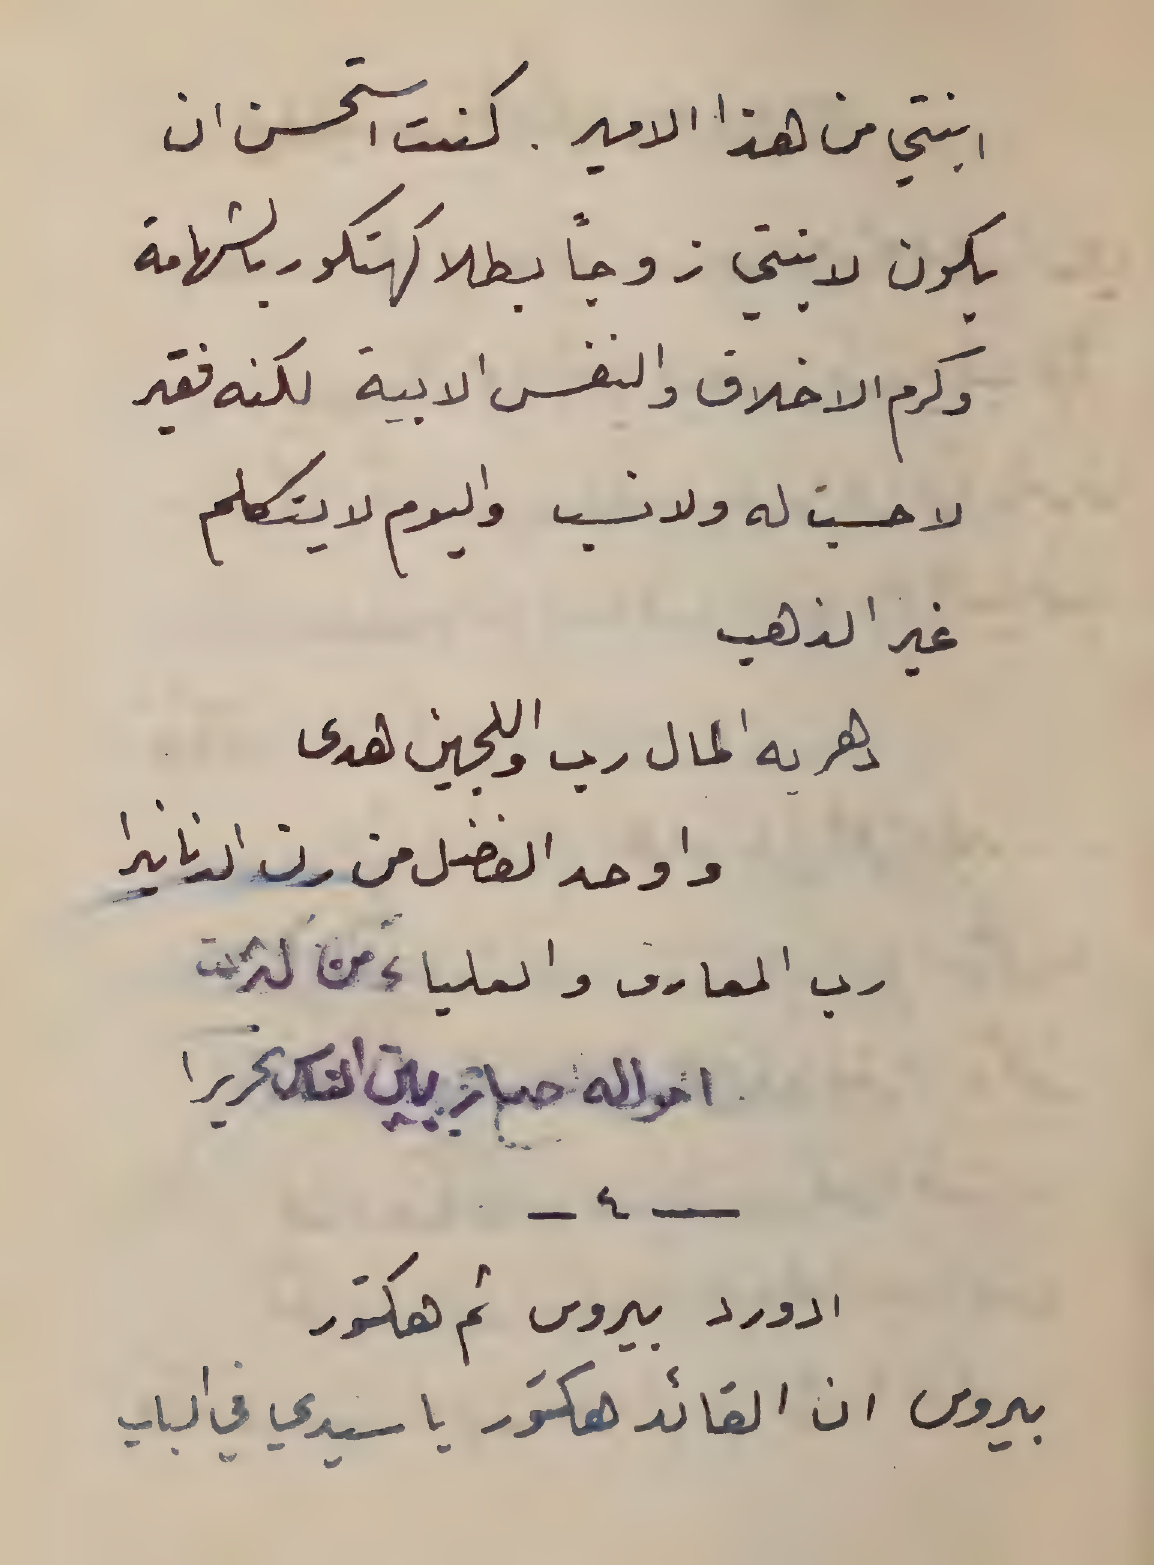 ابنتي من هذا الامير . كنت استحسن ان
يكون لابنتي زوجاً بطلا كهتكور بالشهامة
وكرم الاخلاق والنفس الابية لكنه فقير
لا حسب له ولا نسب واليوم لا يتكلم
غير الذهب
دهر به المال رب واللجين هدى
واوحد الفضل من رن الدنانيرا
رب المعارف والعلياء من كثرت
امواله صار بين الناس نحريرا
— ٤ —
ادورد بيروس ثم هكتور
بيروس ان القائد هكتور يا سيدي في الباب